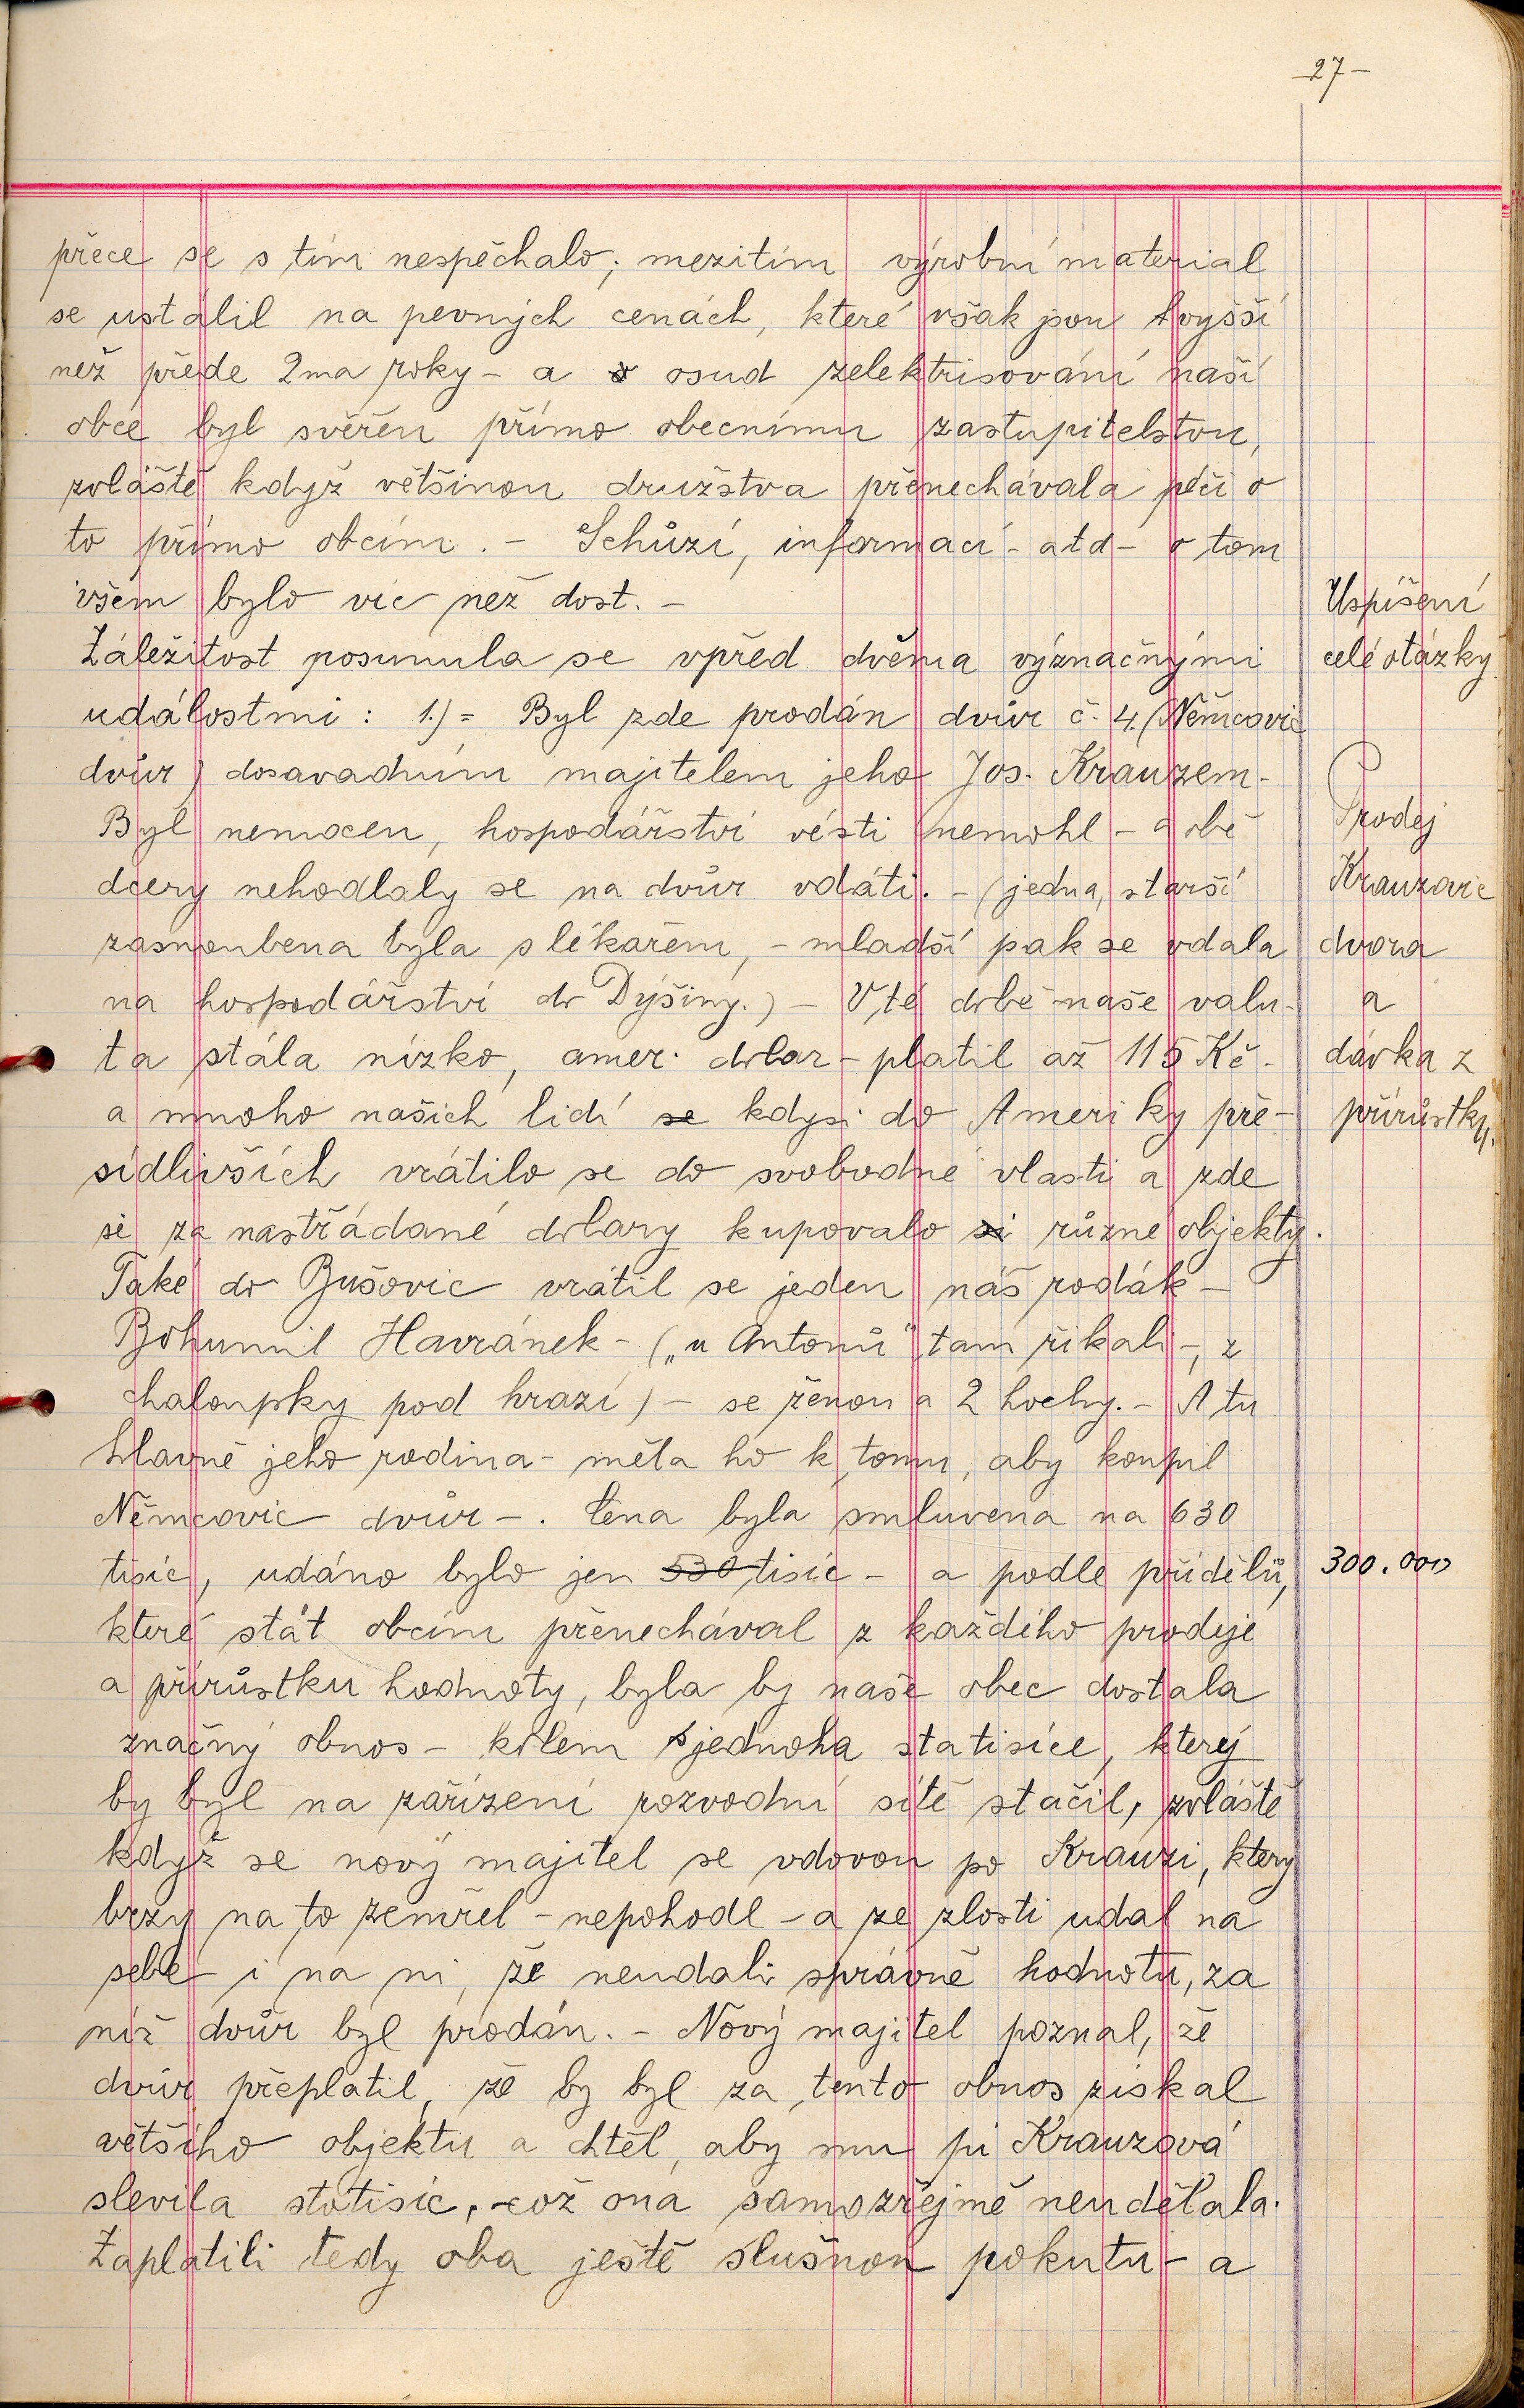 -27-
přece se s tím nespěchalo; mezitím výrobní material
se ustálil na pevných cenách, které však jsou vyšší
než přede 2ma roky - a osud zelektrisování naší
obce byl svěřen přímo obecnímu zastupitelstvu,
zvláště když většinou družstva přenechávala péči o
to přímo obcím. - Schůzí, informací - atd - o tom
všem bylo víc než dost. -
Uspíšení
Záležitost posunula se vpřed dvěma význačnými
celé otázky
událostmi : 1.) = Byl zde prodán dvůr č. 4. (Němcovic
dvůr) dosavadním majitelem jeho Jos. Krauzem.
Byl nemocen, hospodářství vésti nemohl - obě
Prodej
dcery nehodlaly se na dvůr vdáti. - (jedna, starší
Krauzovic
zasnoubena byla s lékařem, - mladší pak se vdala
dvora
na hospodářství do Dýšiny.) - V té době naše valu-
a
ta stála nízko, amer. dolar - platil až 115 Kč -
dávka z
a mnoho našich lidí se kdysi do Ameriky pře-
přírůstky.
sídlivších vrátilo se do svobodné vlasti a zde
si za nastřádané dolary kupovalo si různé objekty.
Také do Bušovic vrátil se jeden náš rodák -
Bohumil Havránek - („u Antonů" tam říkali -, z
chaloupky pod hrází) - se ženou a 2 hochy. - A tu
hlavně jeho rodina - měla ho k tomu, aby koupil
Němcovic dvůr - . Cena byla smluvena na 630
tisíc, udáno bylo jen 530 tisíc - a podle přídělů,
300.000
které stát obcím přenechával z každého prodeje
a přírůstku hodnoty, byla by naše obec dostala
značný obnos - kolem jednoho statisíce, který
by byl na zařízení rozvodní sítě stačil, zvláště
když se nový majitel se vdovou po Krauzi, který
brzy na to zemřel - nepohodl - a ze zlosti udal na
sebe i na ni, že neudali správně hodnotu, za
niž dvůr byl prodán. - Nový majitel poznal, že
dvůr přeplatil, že by byl za tento obnos získal
většího objektu a chtěl, aby mu pí Krauzová
slevila stotisíc, což ona samozřejmě neudělala.
Zaplatili tedy oba ještě slušnou pokutu - a